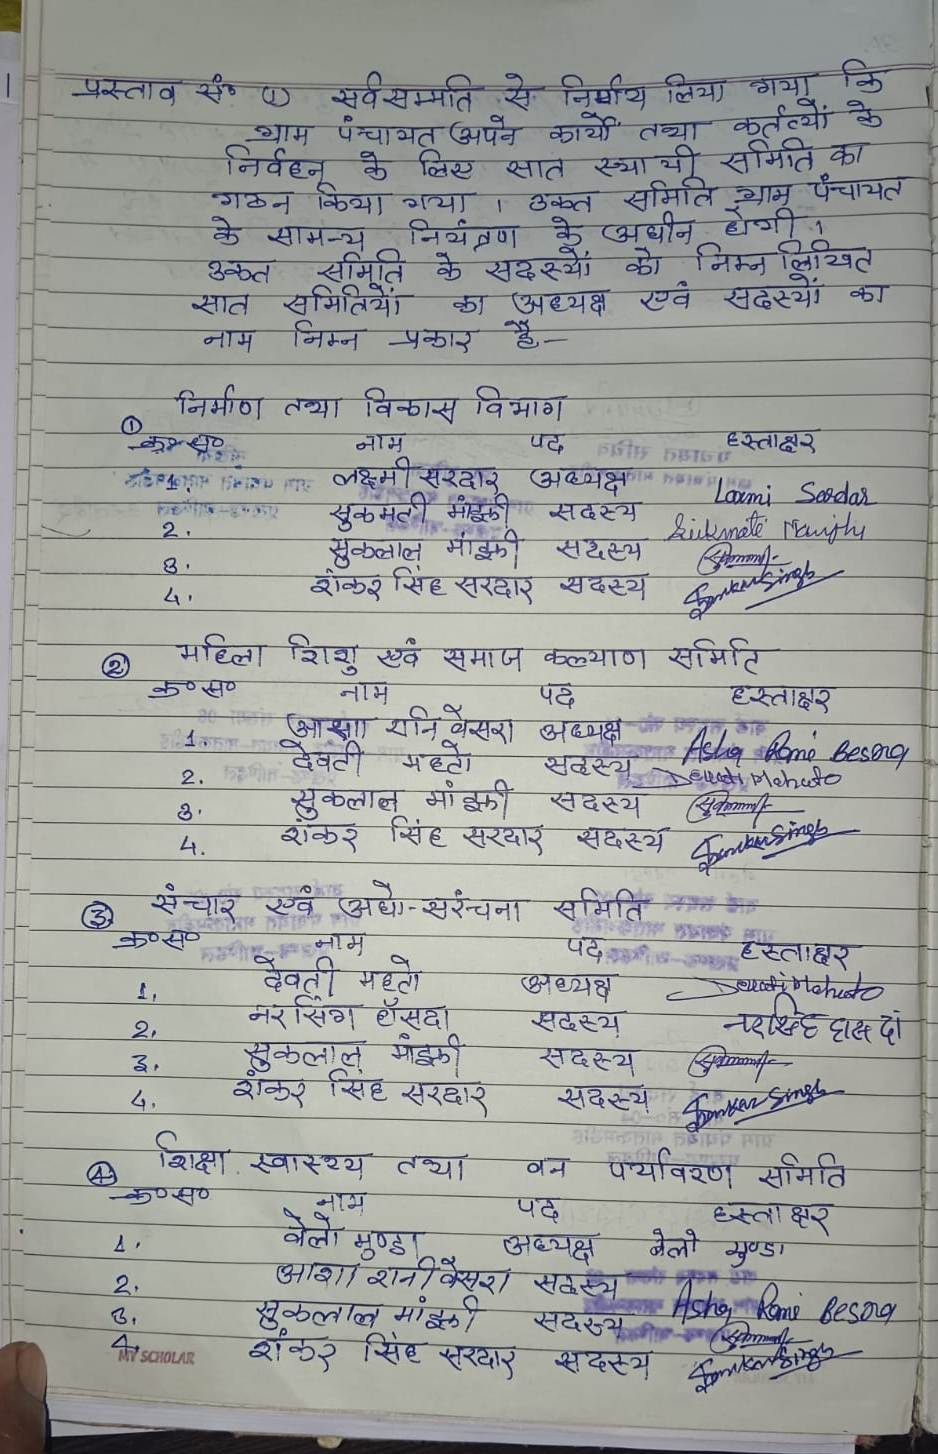 प्रस्ताव सं० (1) सर्वसम्मति से निर्णय लिया गया कि
ग्राम पंचायत अपने कार्यों तथा कर्तव्यों के
निर्वहन के लिए सात स्थायी समिति का
गठन किया गया । उक्त समिति ग्राम पंचायत
के सामन्य नियंत्रण के अधीन होगी ।
उक्त समिति के सदस्यों को निम्न लिखित
सात समितियों का अध्यक्ष एवं सदस्यों का
नाम निम्न प्रकार है –
① निर्माण तथा विकास विभाग
क्र०स० नाम पद हस्ताक्षर
1. लक्ष्मी सरदार अध्यक्ष Laxmi Sardar
2. सुकमती मांझी सदस्य Sukmate Manjhi
3. सुकलाल मांझी सदस्य
4. शंकर सिंह सरदार सदस्य
② महिला शिशु एवं समाज कल्याण समिति
क०स० नाम पद हस्ताक्षर
1. आशा रानि वेसरा अध्यक्ष Asha Rani Besra
2. देवती महतो सदस्य Dewti Mahato
3. सुकलाल मांझी सदस्य
4. शंकर सिंह सरदार सदस्य Sankar Singh
③ संचार एवं अधो-सरंचना समिति
क०स० नाम पद हस्ताक्षर
1. देवती महतो अध्यक्ष Dewti Mahato
2. नरसिंग हाँसदा सदस्य नरसिंह हासदां
3. सुकलाल मांझी सदस्य
4. शंकर सिंह सरदार सदस्य Sankar Singh
④ शिक्षा स्वास्थ्य तथा वन पर्यावरण समिति
क०स० नाम पद हस्ताक्षर
1. वेलो मुण्डा अध्यक्ष बेलो मुण्डा
2. आशा रानी वेसरा सदस्य Asha Rani Besra
3. सुकलाल मांझी सदस्य
4. शंकर सिंह सरदार सदस्य Sankar Singh
MY SCHOLAR